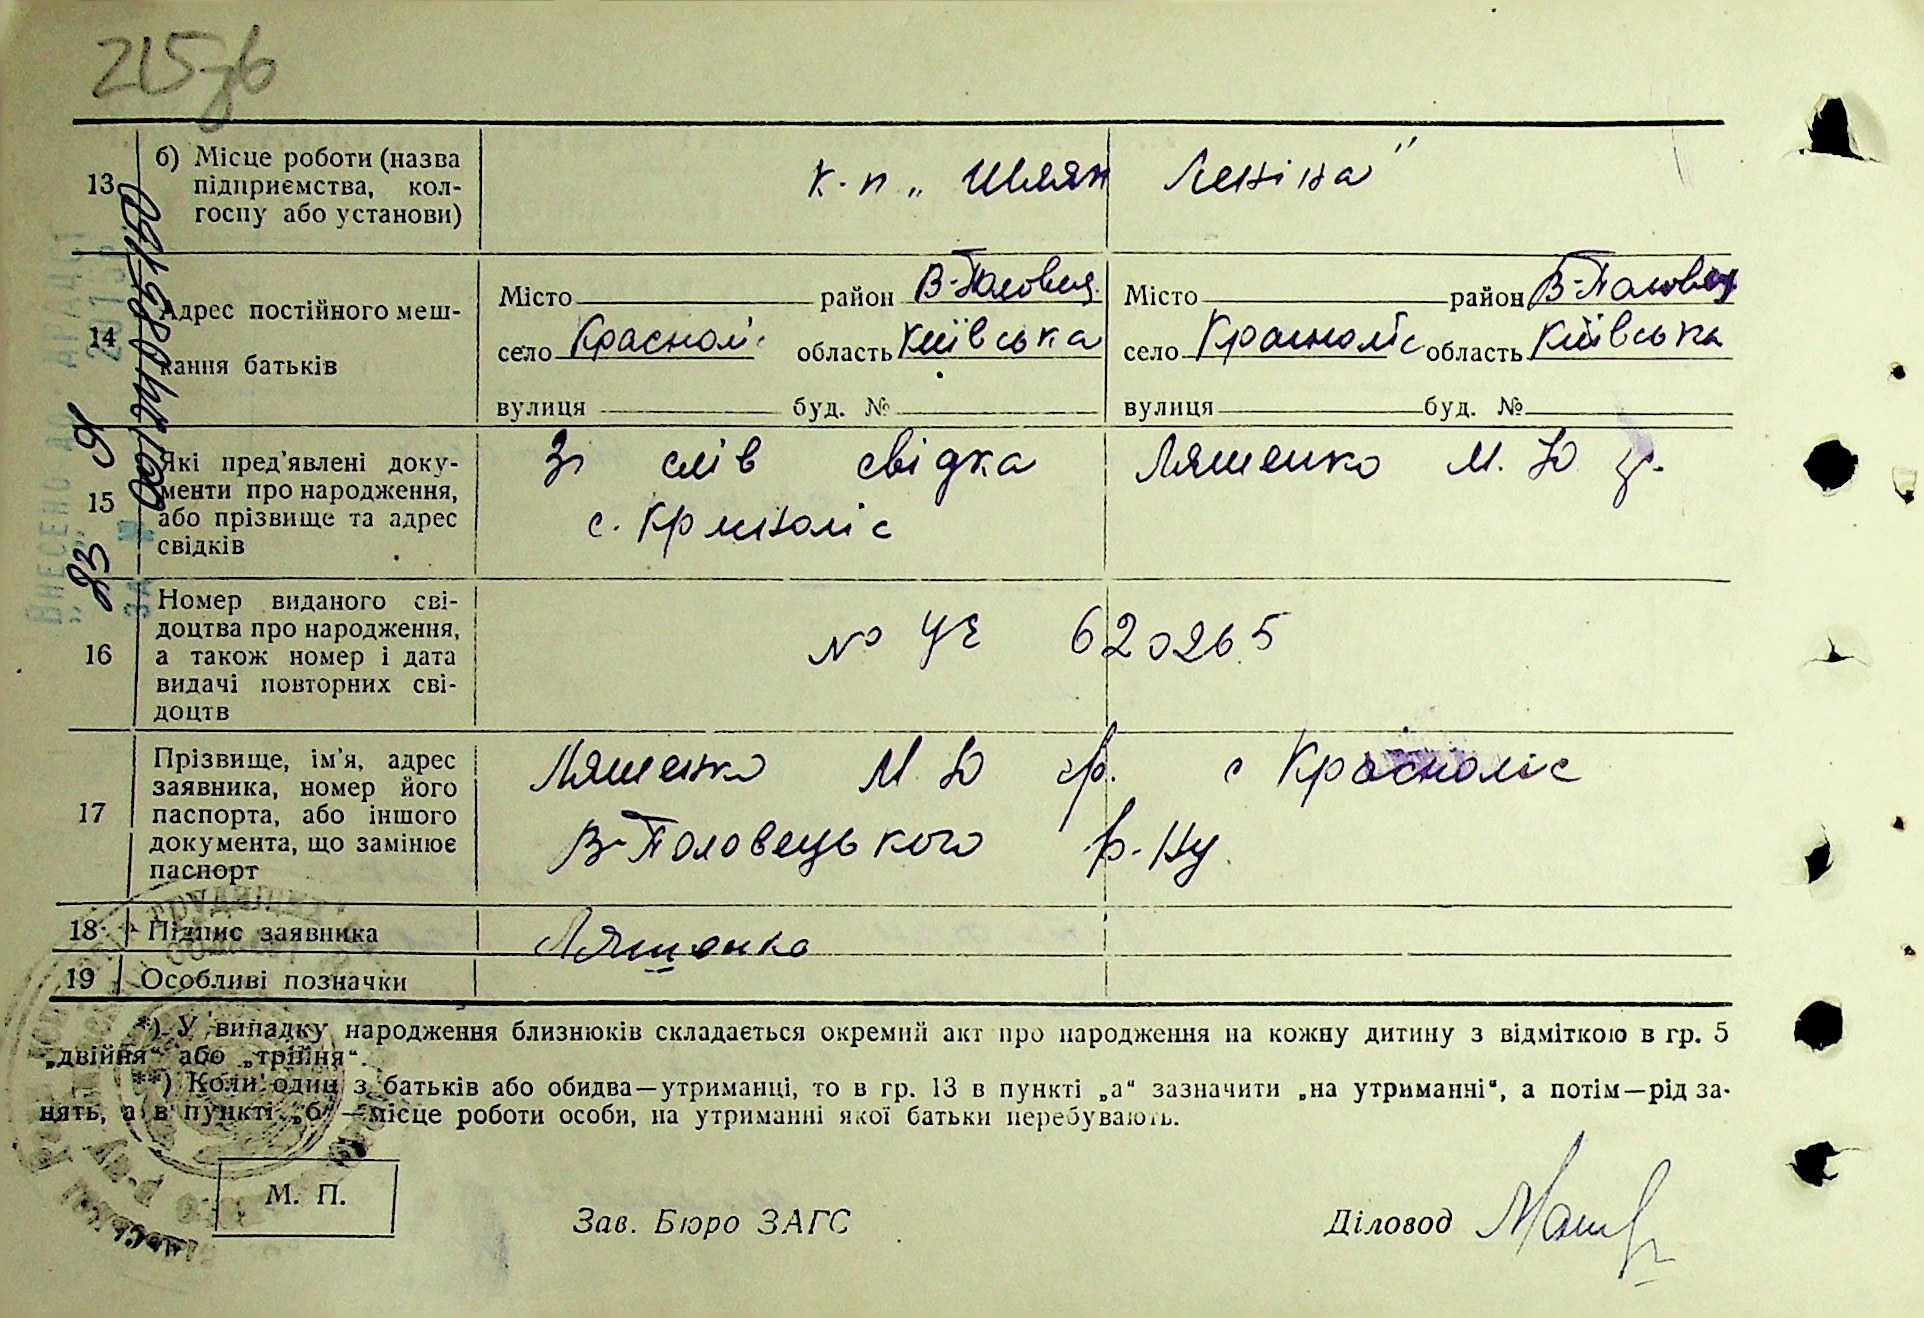 215зв
13
б) Місце роботи (назва
підприємства, кол-
госпу або установи)
к-п „Шлях Леніна"
14
Адрес постійного меш-
кання батьків
Місто район В-Половец.
село Красноліс область Київська
вулиця буд. №
Місто район В-Половец
село Красноліс область Київська
вулиця буд. №
15
Які пред'явлені доку-
менти про народження,
або прізвище та адрес
свідків
Зі слів свідка Ляшенко М. Ю гр.
с. Красноліс
16
Номер виданого сві-
доцтва про народження,
а також номер і дата
видачі повторних сві-
доцтв
№ УЕ 620265
17
Прізвище, ім'я, адрес
заявника, номер його
паспорта, або іншого
документа, що замінює
паспорт
Ляшенко М. Ю гр. с Красноліс
В-Половецького р-ну.
18
Підпис заявника
Ляшенко
19
Особливі позначки
*) У випадку народження близнюків складається окремий акт про народження на кожну дитину з відміткою в гр. 5
„двійня“ або „трійня“.
**) Коли один з батьків або обидва—утриманці, то в гр. 13 в пункті „а“ зазначити „на утриманні“, а потім—рід за-
нять, а в пункті „б“—місце роботи особи, на утриманні якої батьки перебувають.
М. П.
Зав. Бюро ЗАГС
Діловод